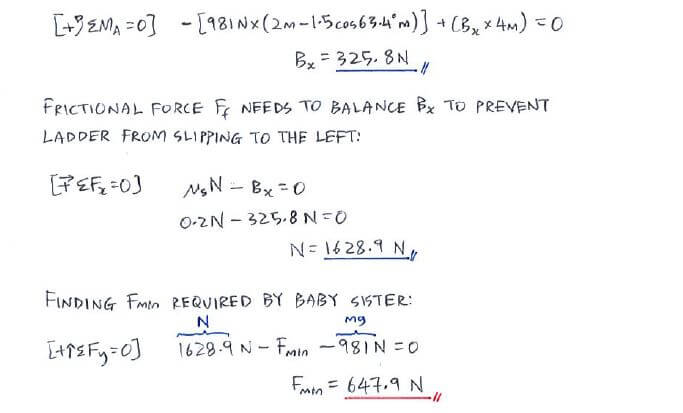 [+↺ΣM_A=0] -[981N×(2m-1.5cos63.4°m)] + (B_x×4m) = 0
B_x = 325.8N
FRICTIONAL FORCE F_f NEEDS TO BALANCE B_x TO PREVENT
LADDER FROM SLIPPING TO THE LEFT:
[+→ΣF_x=0] μ_sN - B_x = 0
0.2N - 325.8N = 0
N = 1628.9 N
FINDING F_min REQUIRED BY BABY SISTER:
N mg
[+↑ΣF_y=0] 1628.9 N - F_min - 981N = 0
F_min = 647.9 N